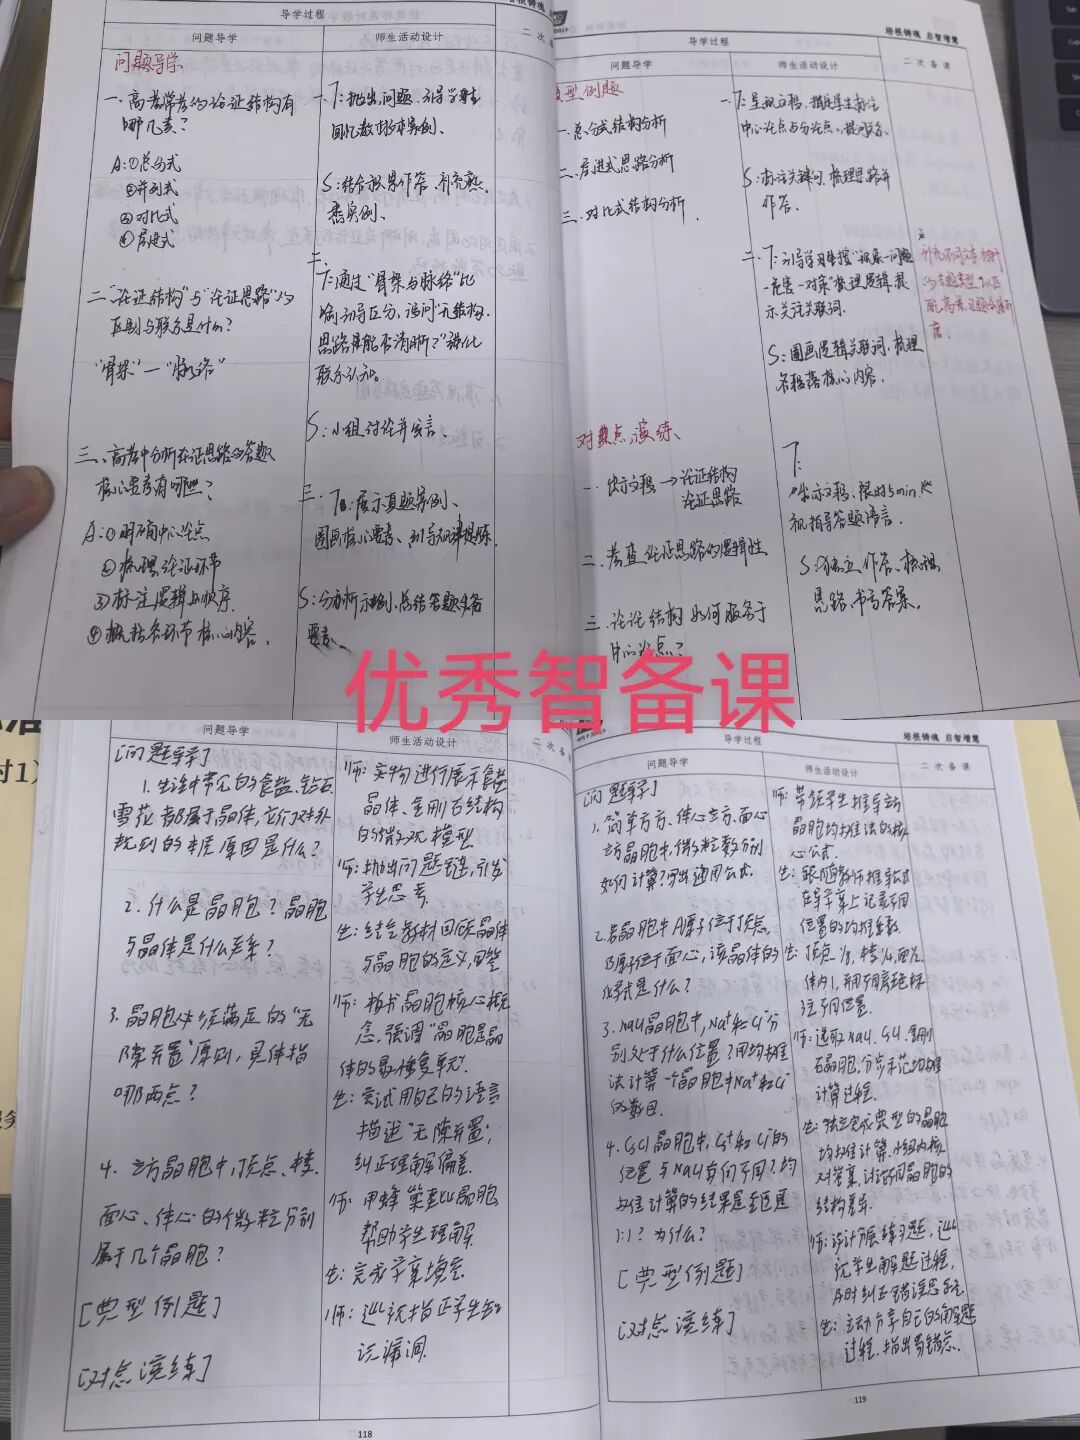 导学过程
问题导学
师生活动设计
二次备
问题导学
一、高考常考的论证结构有
哪几类？
A:①总分式
②并列式
③对比式
④层进式
二、"论证结构"与"论证思路"的
区别与联系是什么？
"骨架"—"脉络"
三、高考中分析论证思路的答题
核心要素有哪些？
A:①明确中心论点
②梳理论证环节
③标注逻辑与顺序
④概括各环节核心内容。
一、T:抛出问题、引导学生
回忆教材文本案例、
S:结合积累作答、补充熟
悉实例、
二、
T:通过"骨架与脉络"比
喻引导区分，追问"无结构，
思路是否清晰？"强化
联系认知。
S:小组讨论并发言。
三、T:展示真题案例、
圈画核心要素、引导归纳提炼.
S:分析示例、总结答题必备
要素、
导学过程
培根铸魂 启智增慧
问题导学
师生活动设计
二次备课
型例题
一、总分式结构分析
二、层进式思路分析
三、对比式结构分析
一、T:呈现文段、指定学生标注
中心论点与分论点、
S:标注关键词、梳理思路并
作答、
二、T:引导学生按"现象—问题
—危害—对策"梳理逻辑,提
示关注关联词.
S:圈画逻辑关联词、梳理
各段落核心内容.
对点演练、
一、出示文段→论证结构
论证思路
二、考查论证思路的逻辑性
三、论证结构如何服务于
中心论点？
T:
出示文段、限时5min、
视指导答题语言.
S:独立作答、梳理
思路、书写答案.
优秀智备课
问题导学
师生活动设计
二次备
[问题导学]
1.生活中常见的食盐、钻石、
雪花都属于晶体,它们对外
规则的本质原因是什么?
2.什么是晶胞?晶胞
与晶体是什么关系?
3.晶胞必须满足的"无
隙并置"原则,具体指
哪两点?
4.立方晶胞中,顶点、棱、
面心、体心的微粒分别
属于几个晶胞?
[典型例题]
[对点演练]
师:实物进行展示食盐
晶体、金刚石结构
的微观模型
师:抛出问题链,引发
学生思考
生:结合教材回顾晶体
与晶胞的定义,回答
师:板书晶胞核心概
念,强调"晶胞是晶
体的最小重复单元".
生:尝试用自己的语言
描述"无隙并置",
纠正理解偏差.
师:用蜂巢类比晶胞,
帮助学生理解
生:完成学案填空.
师:巡视指正学生知
识漏洞.
118
导学过程
培根铸魂 启智增慧
问题导学
师生活动设计
二次备课
[问题导学]
1.简单立方、体心立方、面心
立方晶胞中,微粒数分别
如何计算?写出通用公式.
2.若晶胞中A原子位于顶点,
B原子位于面心,该晶体的
化学式是什么?
3.NaCl晶胞中,Na⁺和Cl⁻分
别处于什么位置?用均摊
法计算一个晶胞中Na⁺和Cl⁻
的数目.
4.CsCl晶胞中,Cs⁺和Cl⁻的
位置与NaCl有何不同?均
摊计算的结果是否也是
1:1?为什么?
[典型例题]
[对点演练]
师:带领学生推导立方
晶胞均摊法的核
心公式.
生:跟随教师推导公式
在学案上记录不同
位置的均摊系数.
生:顶点1/8,棱1/4,面1/2
体内1,用不同颜色标
注不同位置.
师:选取NaCl、CsCl、金刚
石晶胞,分步示范均摊
计算过程.
生:独立完成典型的晶胞
均摊计算,小组内核
对答案,讨论不同晶胞的
结构差异.
师:设计分层练习题,巡
视学生解题过程,
及时纠正错误思路.
生:主动分享自己的解题
过程.指出易错点.
119